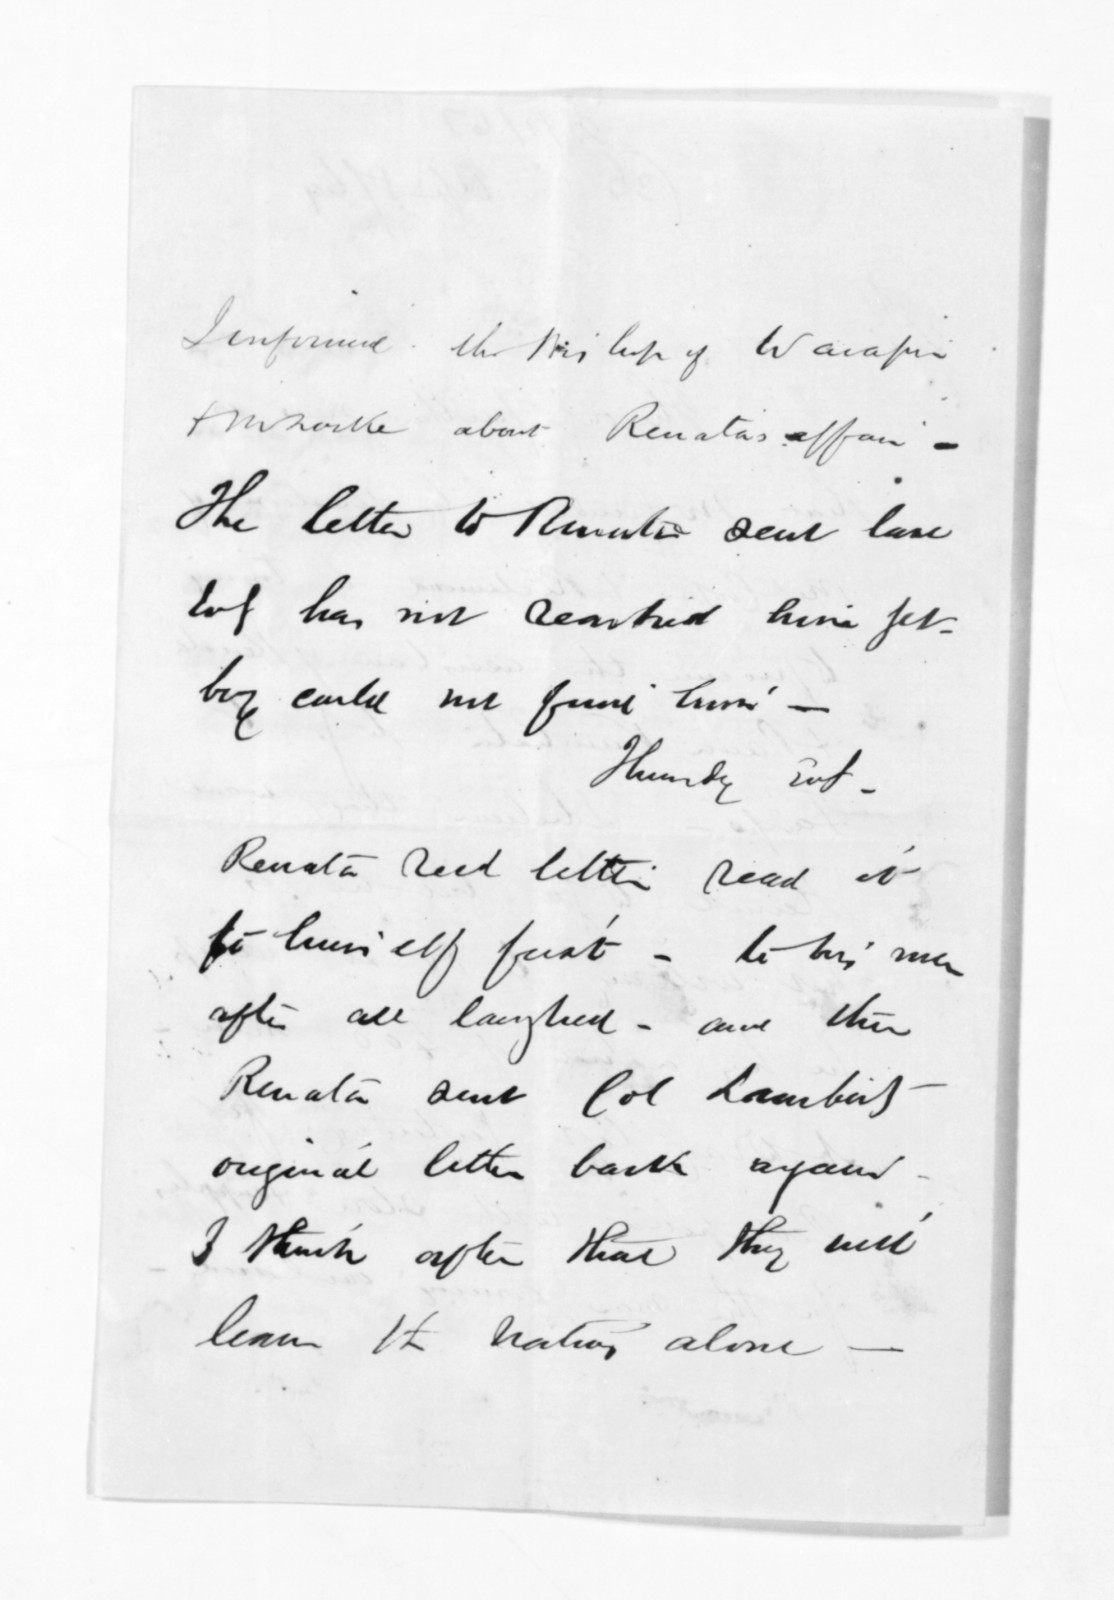 I informed the Bishop of Waiapu
about Renatas affair -
The letter to Renata sent last
Evg has not reached him yet -
boy could not find him -
Thursdy Evg -
Renata recd letter read it
to himself first - to his men
after all laughed - and then
Renata sent Col Lamberts
original letter back again -
I think after that they will
leave the natives alone -